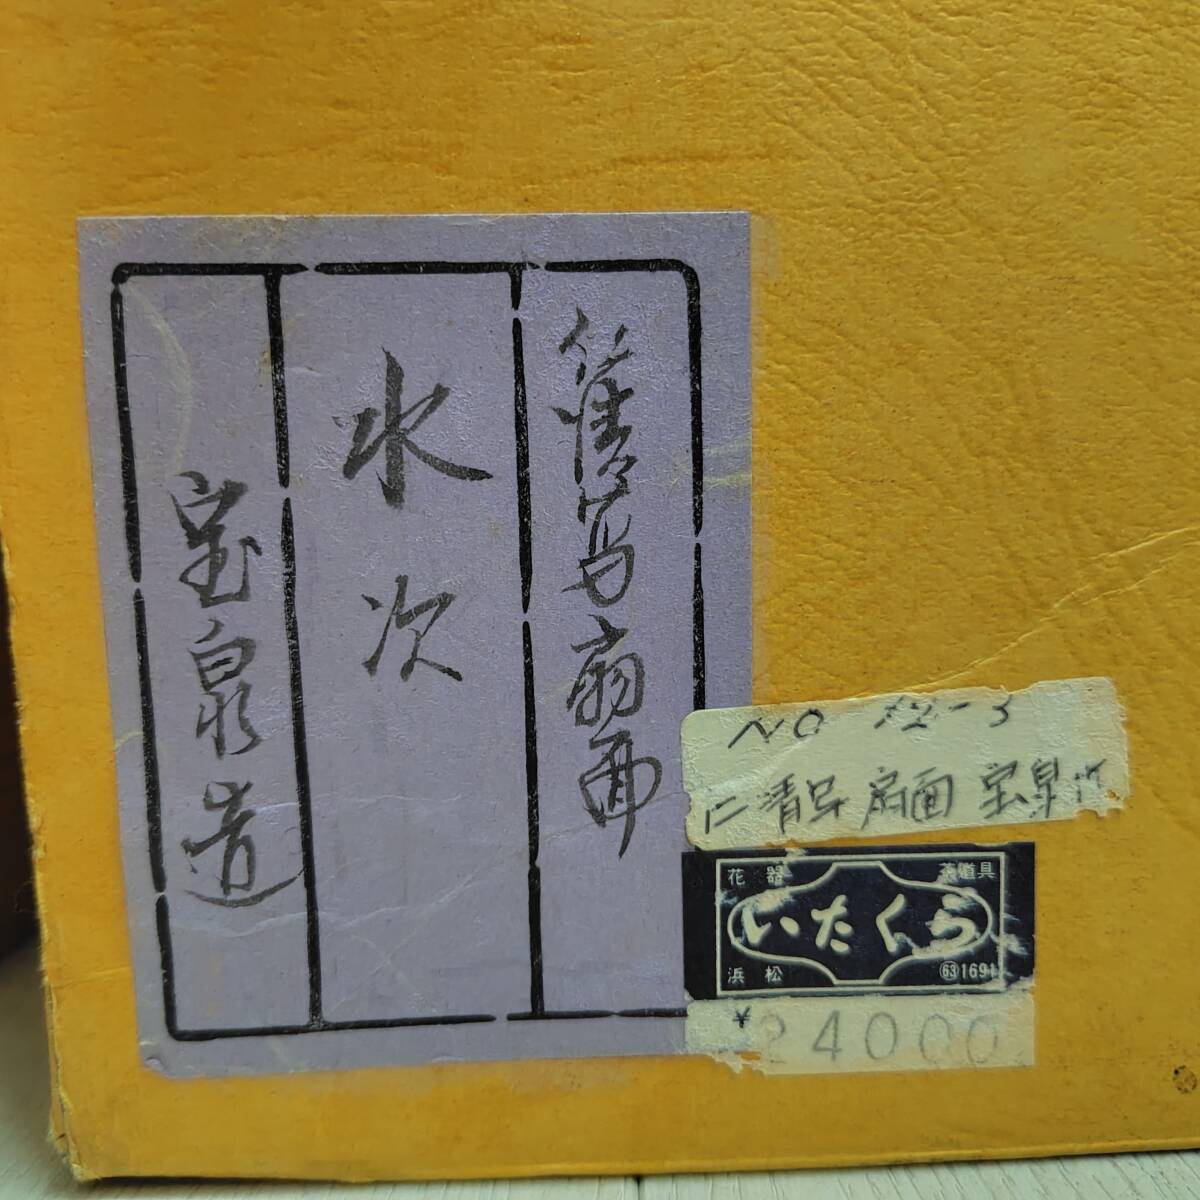 仁清写扇面
水次
宝泉造
NO 12-3
仁清写 扇面 宝泉
花器
茶道具
いたくら
浜松
63 1691
¥24000